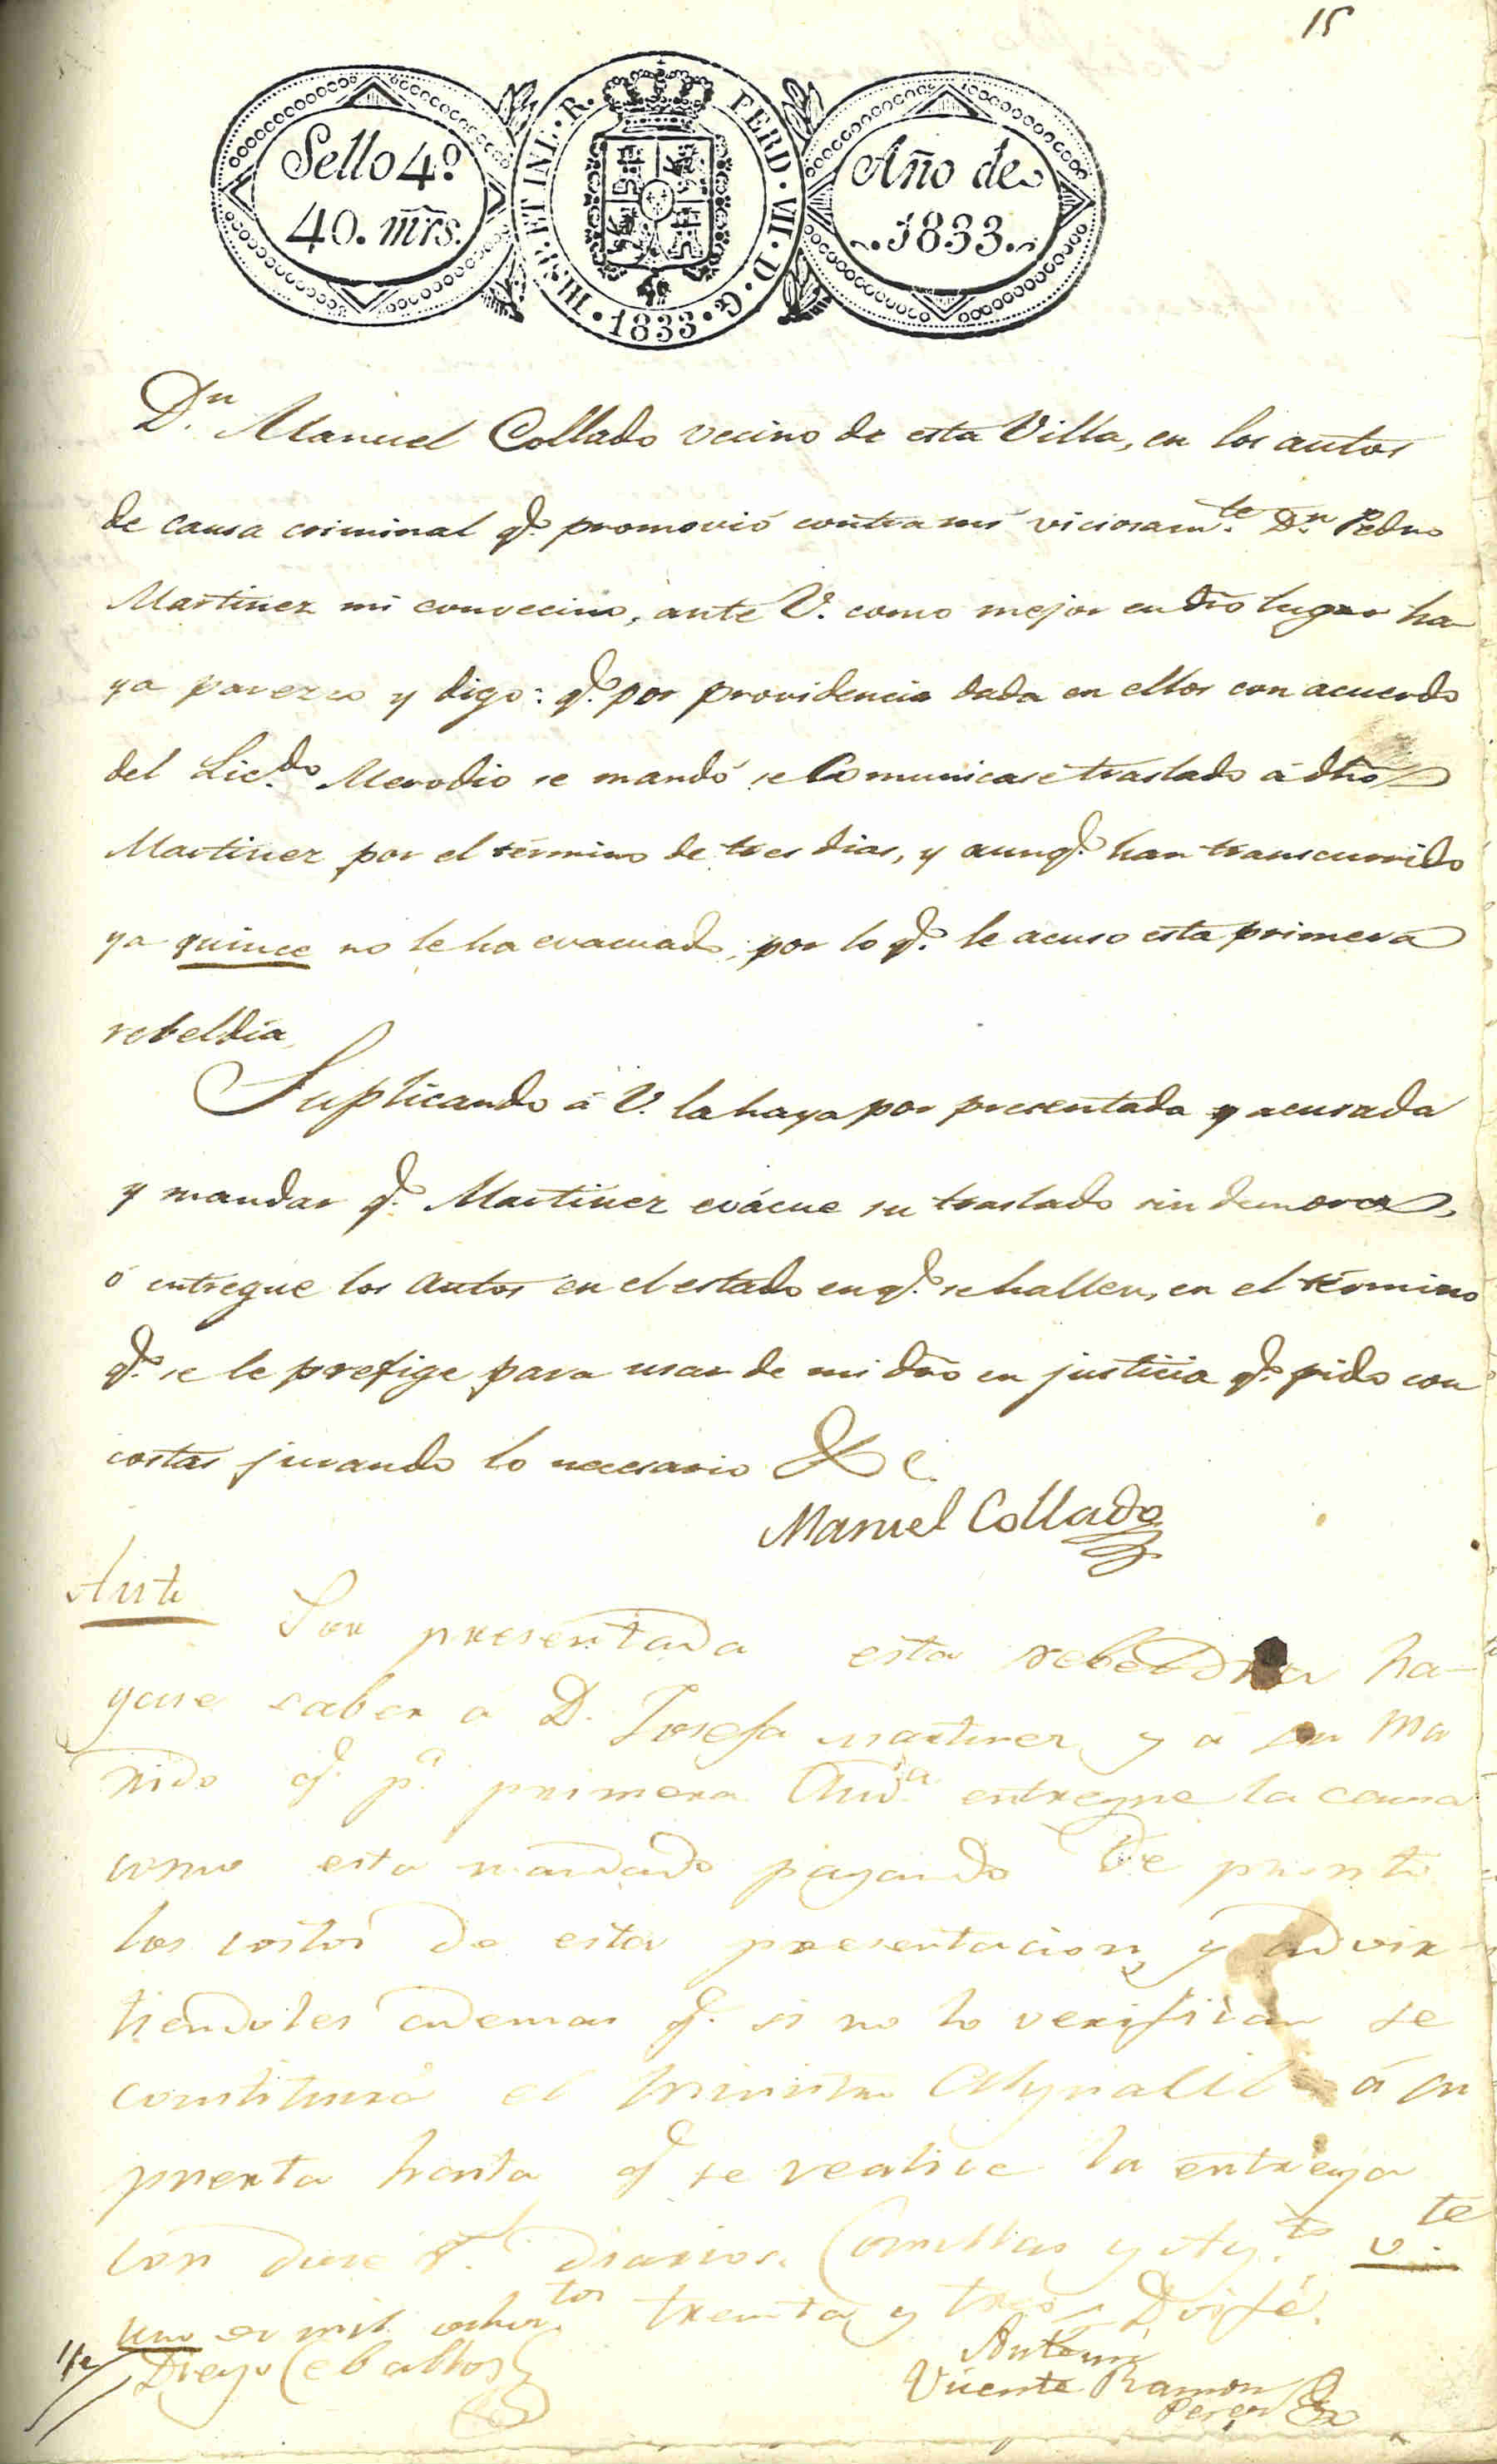 15
Sello 4.º
40. mrs.
HISP. ET IND. R. FERD. VII. D. G. 1833
Año de
1833.
D.n Manuel Collado vecino de esta Villa, en los autos
de causa criminal q.e promovió contra mí viciosam.te D.n Pedro
Martinez mi convecino, ante V. como mejor en dro lugar ha
ya parezco y digo: q.e por providencia dada en ellos con acuerdo
del Lic.do Merodio se mandó se Comunicase traslado á dho
Martinez por el término de tres dias, y aunq.e han transcurrido
ya quince no le ha evacuado, por lo q.e le acuso esta primera
rebeldia,
Suplicando á V. la haya por presentada y acusada
y mandar q.e Martinez evácue su traslado sin demora,
ó entregue los Autos en el estado en q.e se hallen, en el término
q.e se le prefige para usar de mi dro en justicia q.e pido con
costas jurando lo necesario &c.
Manuel Collado
Auto
Por presentada esta rebeldia ha-
gase saber a D. Josefa martinez y á su Ma
rido q.e p.a primera Aud.a entregue la causa
como esta mandado pagando De pronto
los costos de esta presentacion y advir
tiendoles ademas q.e si no lo verifican se
constituira el ministro Alguacil á su
puerta hasta q.e se realice la entrega
con doce r.s diarios. Comillas y Ag.to v.te
uno de mil ochoc.tos treinta y tres Doi fé.
Diego Ceballos
Antemi
Vicente Ramon
Perez